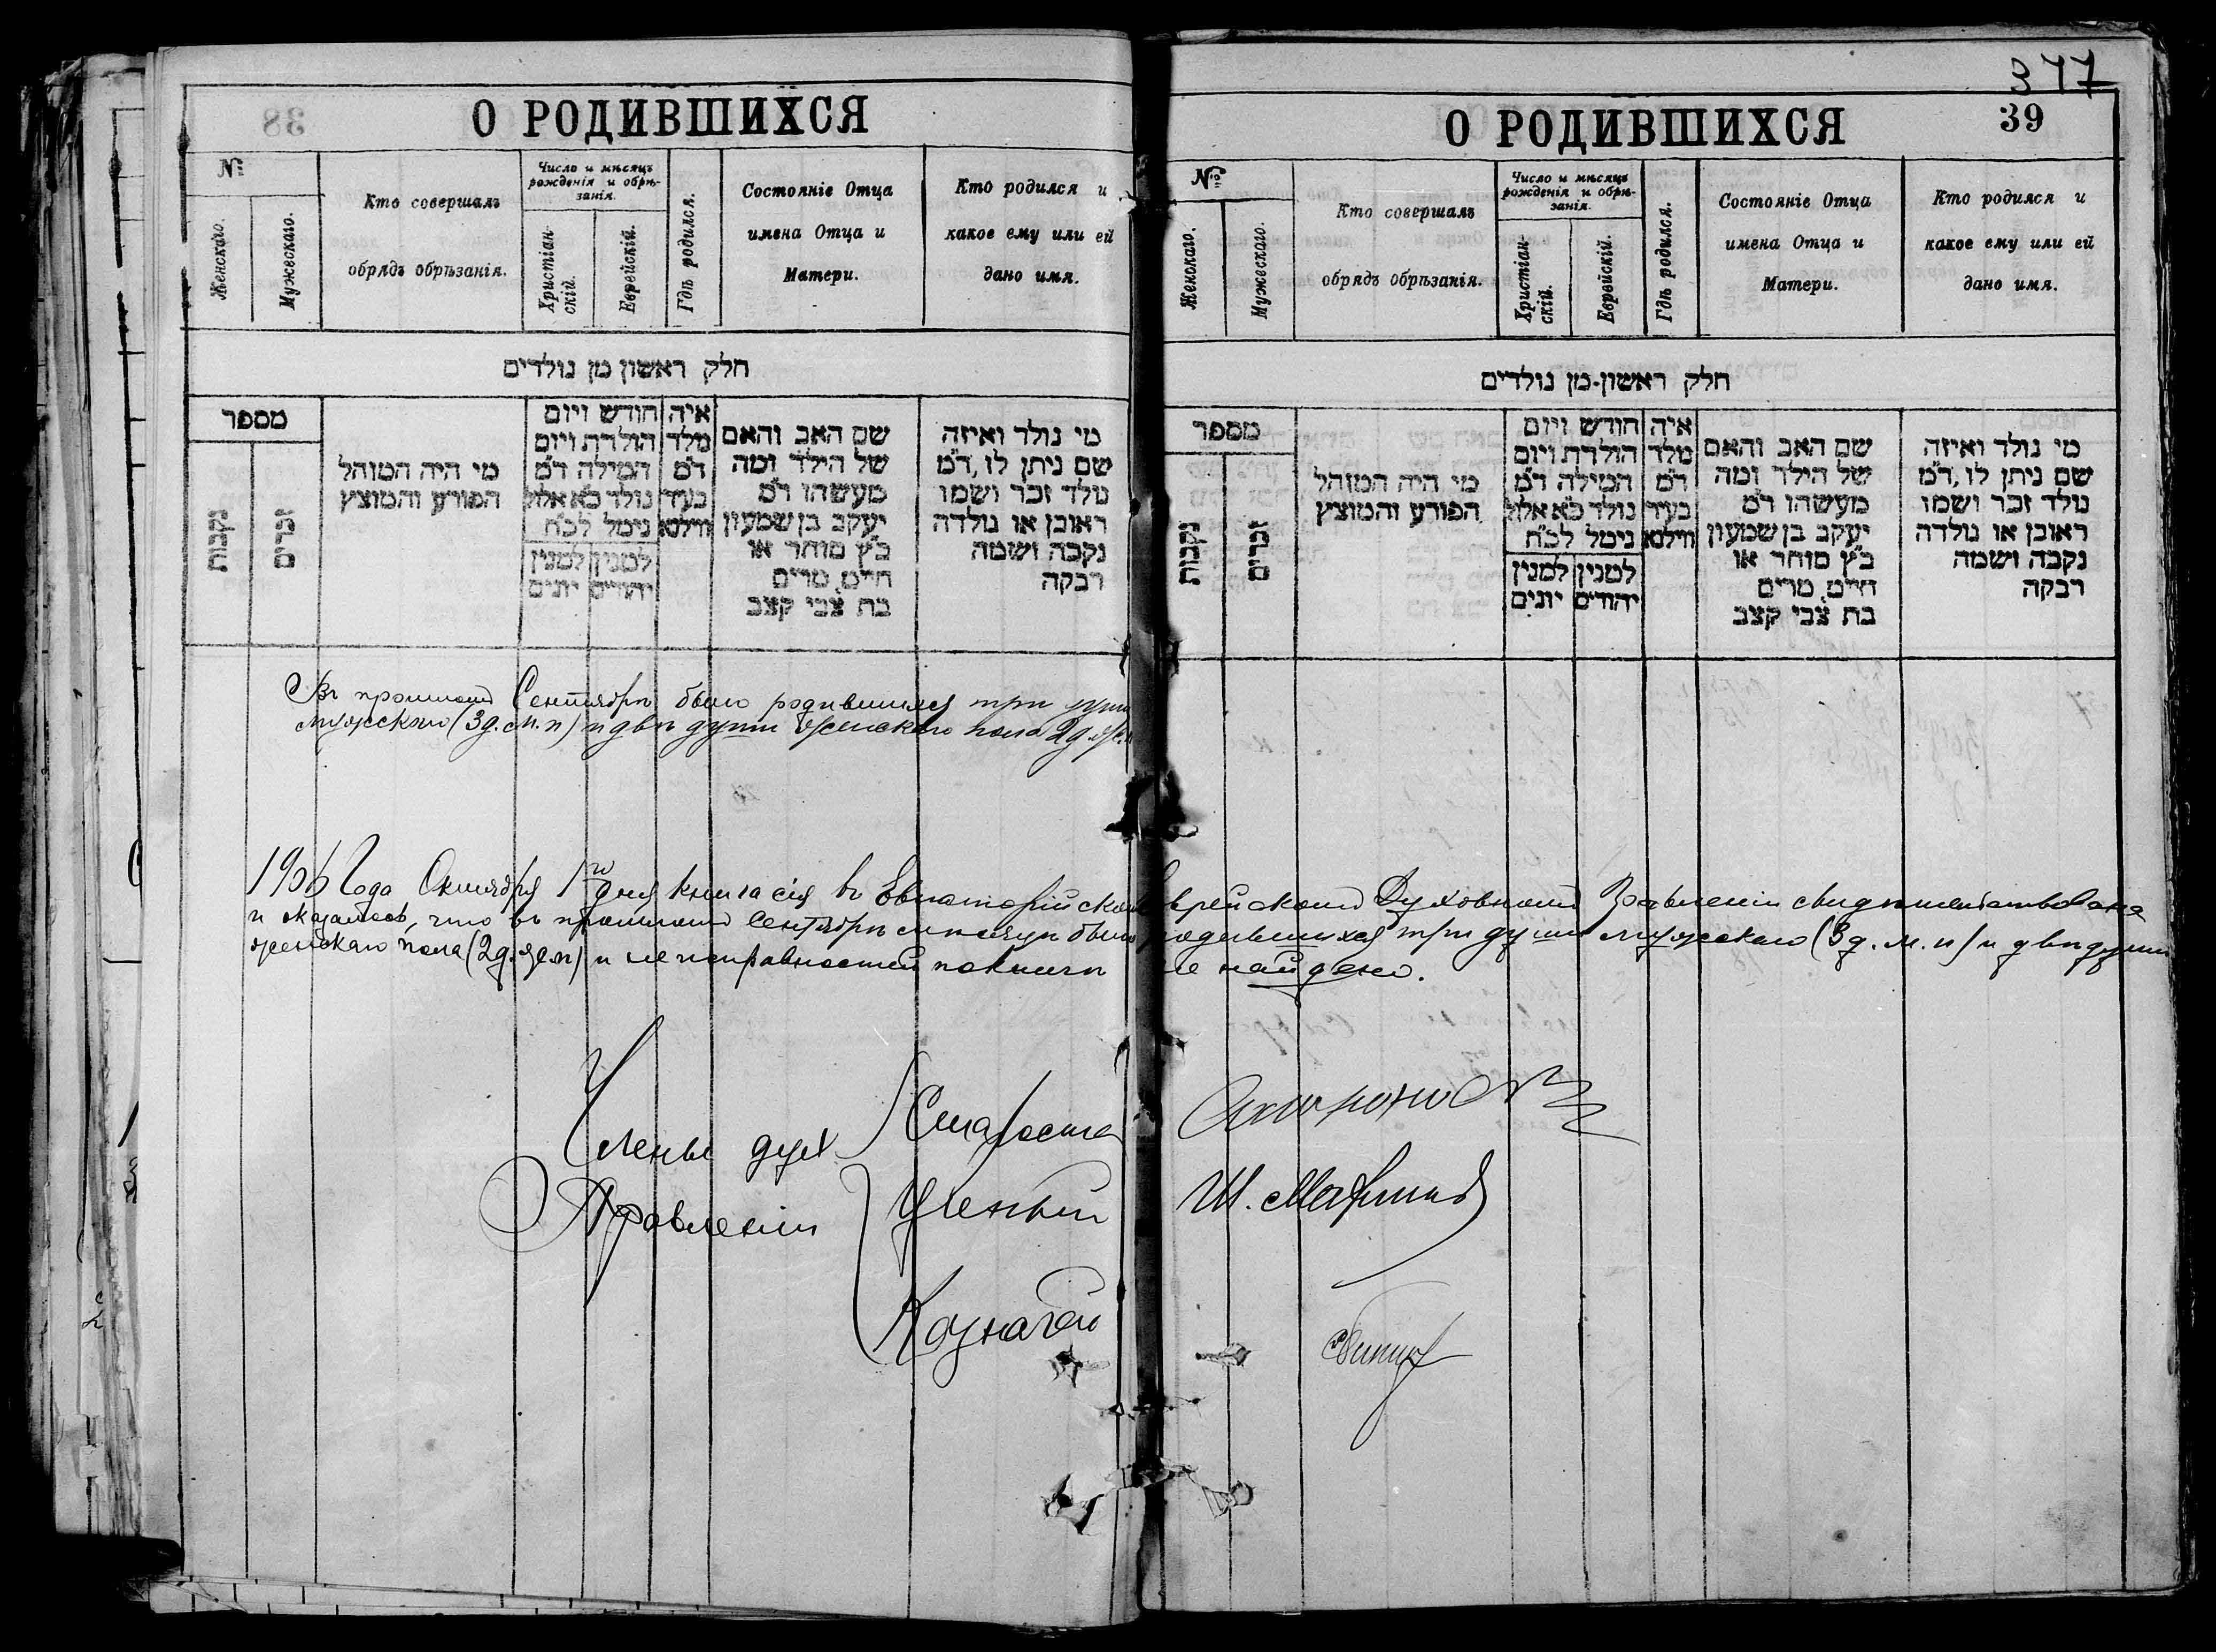 38
О РОДИВШИХСЯ
№
Женскаго.
Мужескаго.
Кто совершалъ
обрядъ обрѣзанія.
Число и мѣсяцъ
рожденія и обрѣ-
занія.
Христіан-
скій.
Еврейскій.
Гдѣ родился.
Состояніе Отца
имена Отца и
Матери.
Кто родился и
какое ему или ей
дано имя.
חלק ראשון מן נולדים
מספר
נקבות
זכרים
מי היה המוהל
הפורע והמוצץ
חודש ויום
הולדת ויום
המילה ד״מ
נולד כ״א אלול
נימל לכ״ח
למנין למנין
יהודים יונים
איה
מלד
ד״מ
בעיר
ווילנא
שם האב והאם
של הילד ומה
מעשהו ד״מ
יעקב בן שמעון
כ״ץ סוחר או
חייט, מרים
בת צבי קצב
מי נולד ואיזה
שם ניתן לו, ד״מ
נולד זכר ושמו
ראובן או נולדה
נקבה ושמה
רבקה
Въ прошломъ Сентябрѣ было родившихся три души
мужскаго (3 д. м. п) и двѣ души женскаго пола 2 д. ж.
377
39
О РОДИВШИХСЯ
№
Женскаго.
Мужескаго.
Кто совершалъ
обрядъ обрѣзанія.
Число и мѣсяцъ
рожденія и обрѣ-
занія.
Христіан-
скій.
Еврейскій.
Гдѣ родился.
Состояніе Отца
имена Отца и
Матери.
Кто родился и
какое ему или ей
дано имя.
חלק ראשון מן נולדים
מספר
נקבות
זכרים
מי היה המוהל
הפורע והמוצץ
חודש ויום
הולדת ויום
המילה ד״מ
נולד כ״א אלול
נימל לכ״ח
למנין למנין
יהודים יונים
איה
מלד
ד״מ
בעיר
ווילנא
שם האב והאם
של הילד ומה
מעשהו ד״מ
יעקב בן שמעון
כ״ץ סוחר או
חייט, מרים
בת צבי קצב
מי נולד ואיזה
שם ניתן לו, ד״מ
נולד זכר ושמו
ראובן או נולדה
נקבה ושמה
רבקה
1906 Года Октября 1го дня книга сія въ Евпаторійском Еврейскомъ Духовномъ Правленіи свидѣтельствована
и оказалось, что въ прошломъ Сентябрѣ мѣсяцѣ было родившихся три души мужскаго (3 д. м. п) и двѣ души
женскаго пола (2 д. же п) и неисправностей по книгѣ не найдено.
Члены дух
Правленія
Староста
Ученый
Казначей
Ш.